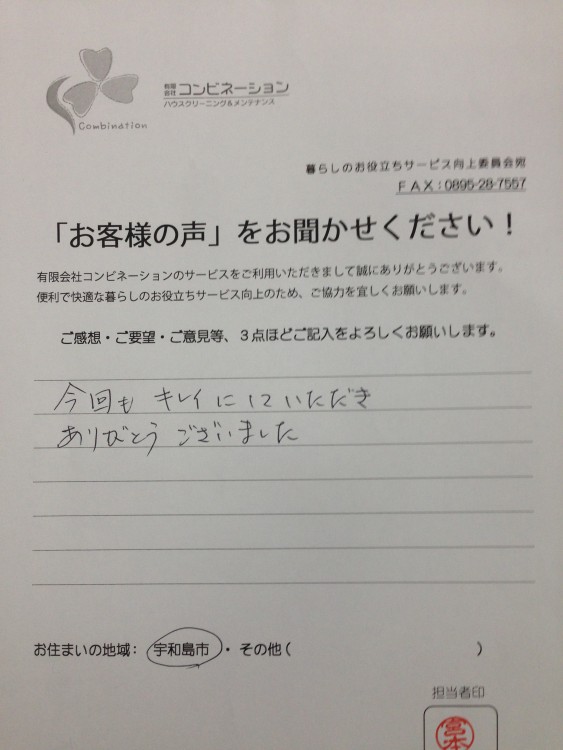 Combination
有限会社 コンビネーション
ハウスクリーニング&メンテナンス
暮らしのお役立ちサービス向上委員会宛
FAX:0895-28-7557
「お客様の声」をお聞かせください!
有限会社コンビネーションのサービスをご利用いただきまして誠にありがとうございます。
便利で快適な暮らしのお役立ちサービス向上のため、ご協力を宜しくお願いします。
ご感想・ご要望・ご意見等、3点ほどご記入をよろしくお願いします。
今回も キレイにしていただき
ありがとう ございました
お住まいの地域: 宇和島市 ・ その他( )
担当者印